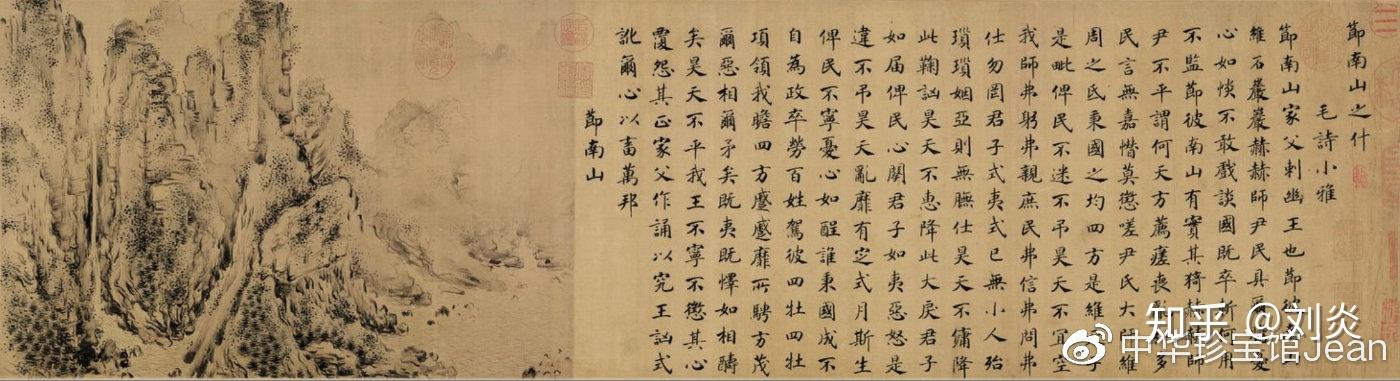 節南山之什
毛詩小雅
節南山家父刺幽王也節彼南山
維石巖巖赫赫師尹民具爾瞻憂
心如惔不敢戲談國既卒斬何用
不監節彼南山有實其猗赫赫師
尹不平謂何天方薦瘥喪亂弘多
民言無嘉憯莫懲嗟尹氏大師維
周之氐秉國之均四方是維天子
是毗俾民不迷不弔昊天不宜空
我師弗躬弗親庶民弗信弗問弗
仕勿罔君子式夷式已無小人殆
瑣瑣姻亞則無膴仕昊天不傭降
此鞠訩昊天不惠降此大戾君子
如届俾民心闋君子如夷惡怒是
違不弔昊天亂靡有定式月斯生
俾民不寧憂心如酲誰秉國成不
自為政卒勞百姓駕彼四牡四牡
項領我瞻四方蹙蹙靡所騁方茂
爾惡相爾矛矣既夷既懌如相醻
矣昊天不平我王不寧不懲其心
覆怨其正家父作誦以究王訩式
訛爾心以畜萬邦
節南山
知乎 @刘炎
中华珍宝馆Jean